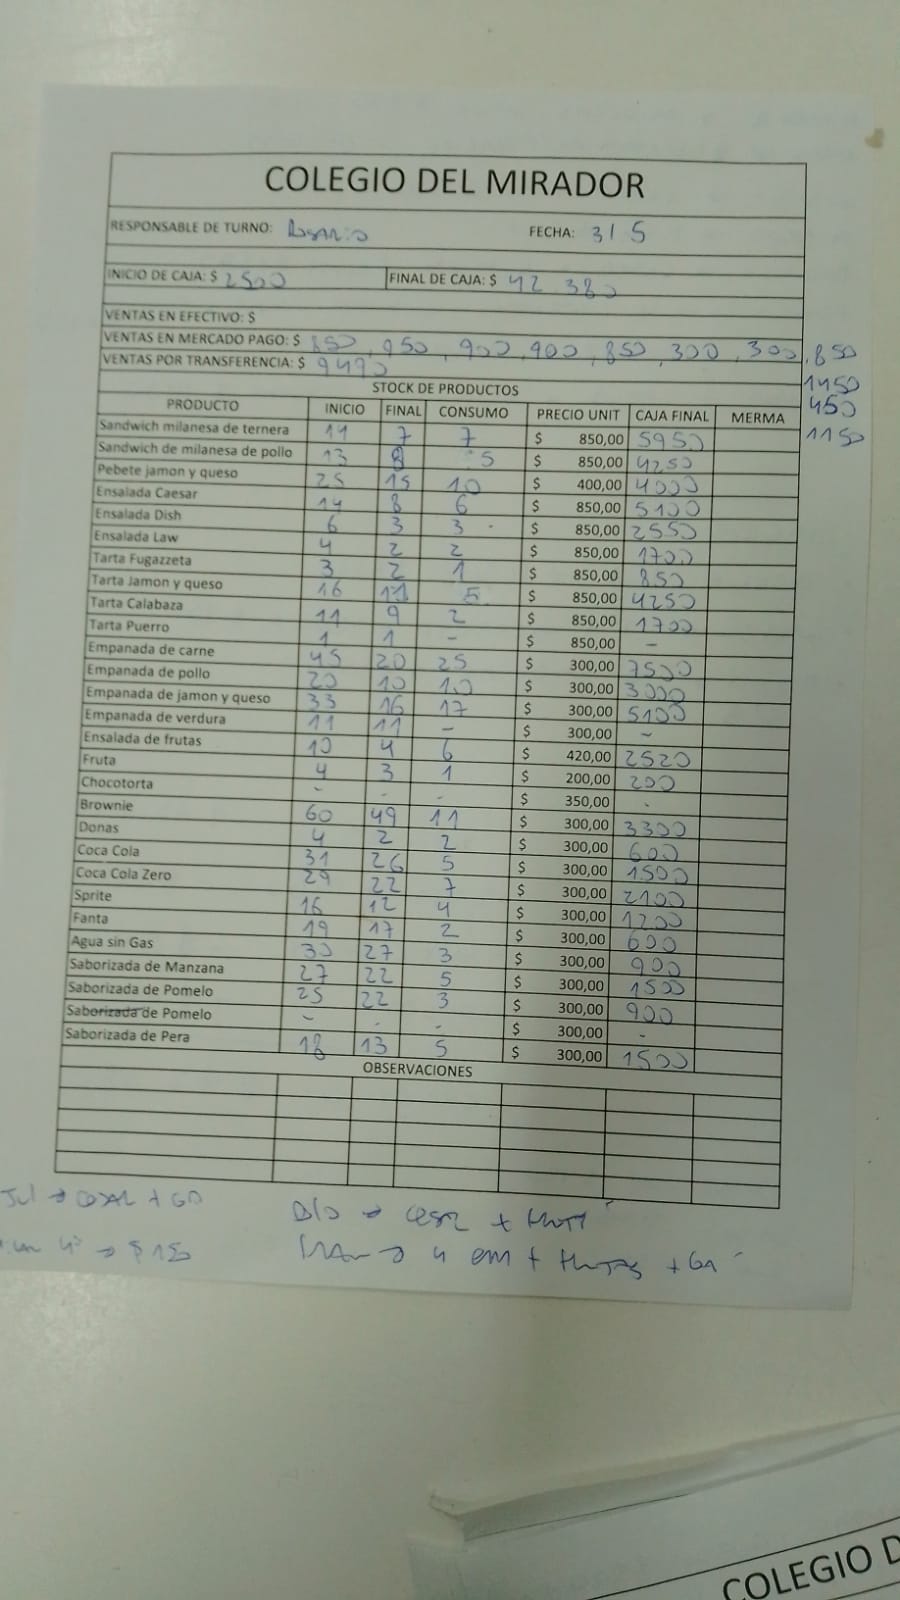 COLEGIO DEL MIRADOR
RESPONSABLE DE TURNO: Rosario FECHA: 3/5
INICIO DE CAJA: $ 2500 FINAL DE CAJA: $ 42 380
VENTAS EN EFECTIVO: $
VENTAS EN MERCADO PAGO: $ 850, 950, 900, 900, 850, 300, 300, 850
1450
450
1150
VENTAS POR TRANSFERENCIA: $ 9490
STOCK DE PRODUCTOS
PRODUCTO INICIO FINAL CONSUMO PRECIO UNIT CAJA FINAL MERMA
Sandwich milanesa de ternera 14 7 7 $ 850,00 5950
Sandwich de milanesa de pollo 13 8 5 $ 850,00 4250
Pebete jamon y queso 25 15 10 $ 400,00 4000
Ensalada Caesar 14 8 6 $ 850,00 5100
Ensalada Dish 6 3 3 $ 850,00 2550
Ensalada Law 4 2 2 $ 850,00 1700
Tarta Fugazzeta 3 2 1 $ 850,00 850
Tarta Jamon y queso 16 11 5 $ 850,00 4250
Tarta Calabaza 11 9 2 $ 850,00 1700
Tarta Puerro 1 1 - $ 850,00 -
Empanada de carne 45 20 25 $ 300,00 7500
Empanada de pollo 20 10 10 $ 300,00 3000
Empanada de jamon y queso 33 16 17 $ 300,00 5100
Empanada de verdura 11 11 - $ 300,00 -
Ensalada de frutas 10 4 6 $ 420,00 2520
Fruta 4 3 1 $ 200,00 200
Chocotorta - - - $ 350,00 -
Brownie 60 49 11 $ 300,00 3300
Donas 4 2 2 $ 300,00 600
Coca Cola 31 26 5 $ 300,00 1500
Coca Cola Zero 29 22 7 $ 300,00 2100
Sprite 16 12 4 $ 300,00 1200
Fanta 19 17 2 $ 300,00 600
Agua sin Gas 30 27 3 $ 300,00 900
Saborizada de Manzana 27 22 5 $ 300,00 1500
Saborizada de Pomelo 25 22 3 $ 300,00 900
Saborizada de Pomelo - - - $ 300,00 -
Saborizada de Pera 18 13 5 $ 300,00 1500
OBSERVACIONES
4 em +
COLEGIO D